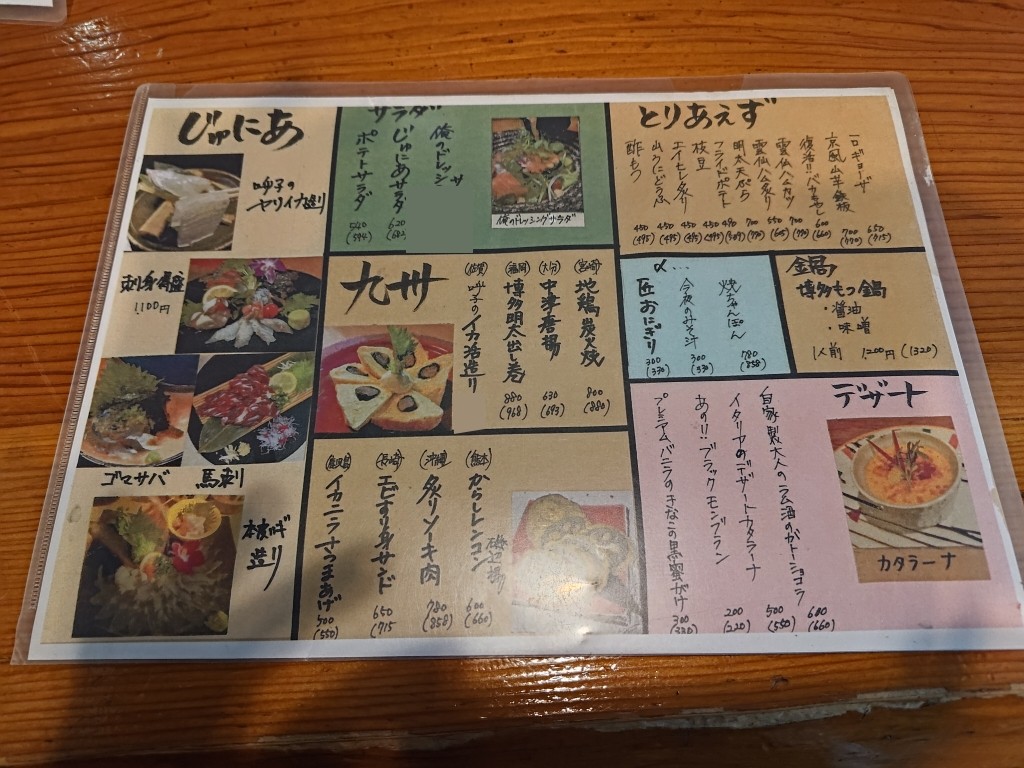 じゅにあ
呼子の
ヤリイカ造り
刺身八寸盛
1,100円
ゴマサバ
馬刺
造り
サラダ
俺のドレッシング
じゅにあサラダ
620
ポテトサラダ
540
(594)
俺のドレッシングサラダ
とりあえず
一口ギョーザ
650
(715)
京風山芋鉄板
700
(770)
復活!!バカもやし
600
(660)
雲仙ハムカツ
700
(770)
雲仙ハム炙り
550
(605)
明太天ぷら
700
(770)
フライドポテト
490
枝豆
450
(495)
エイヒレ炙り
450
(495)
450
(495)
酢もつ
450
(495)
九州
(宮崎)
地鶏炭火焼
800
(880)
(大分)
中津唐揚
630
(693)
(福岡)
博多明太出し巻
880
(968)
(佐賀)
呼子のイカ活造り
(熊本)
からしレンコン
600
(660)
(沖縄)
炙りソーキ肉
780
(858)
(長崎)
エビすり身サンド
650
(715)
(鹿児島)
イカニラさつまあげ
500
(550)
〆…
焼ちゃんぽん
780
(858)
今夜のみそ汁
300
(330)
匠おにぎり
300
(330)
鍋
博多もつ鍋
・醤油
・味噌
1人前 1200円(1320)
デザート
自家製大人のラム酒のガトーショコラ
600
(660)
イタリアのデザートカタラーナ
500
(550)
あの!!ブラックモンブラン
200
(220)
プレミアムバニラのきなこの黒蜜がけ
300
(330)
カタラーナ